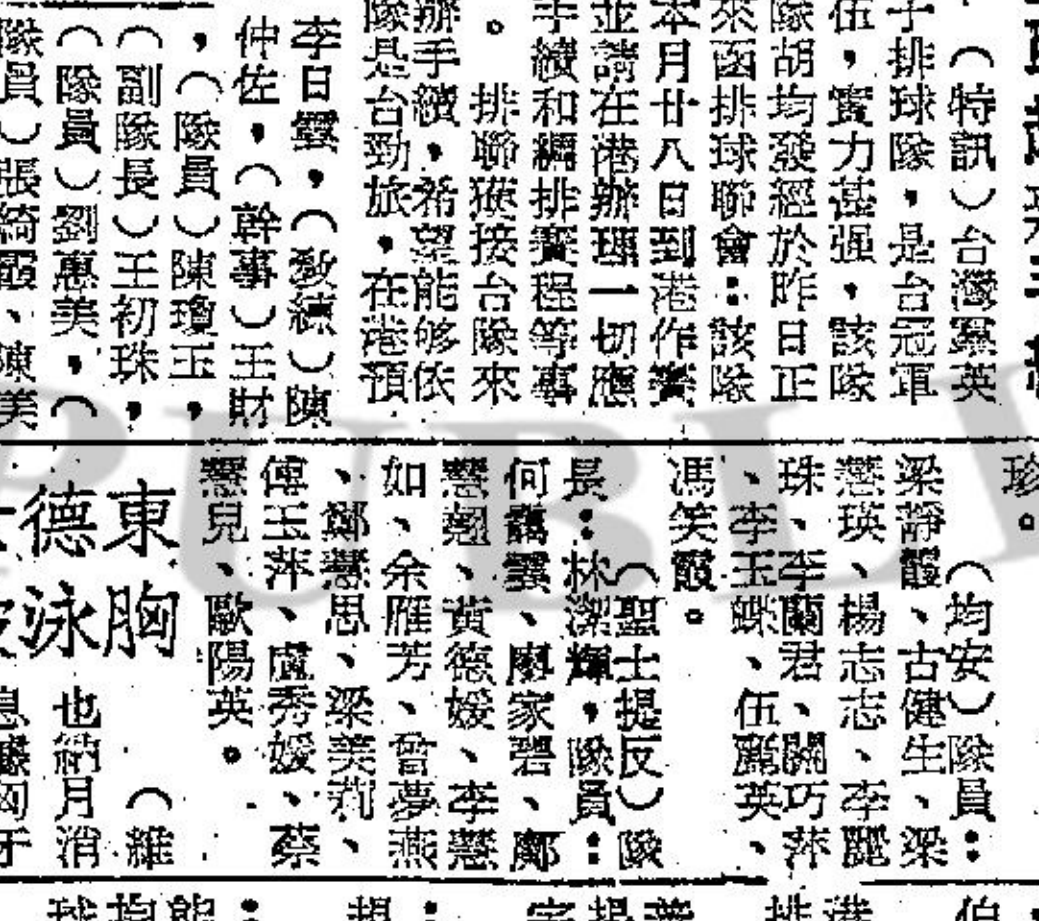 (特訊)台灣羣英
子排球隊,是台冠軍
伍,實力甚强,該隊
隊胡均發經於昨日正
來函排球聯會:該隊
本月廿八日到港作賽
並請在港辦理一切應
手續和編排賽程等事
。 排聯獲接台隊來
辦手續,希望能够依
隊是台勁旅,在港預
李日 ,(教練)陳
仲佐,(幹事)王財
,(隊員)陳瓊玉,
(副隊長)王初珠,
(隊員)劉惠美,(
隊員)張綺霞、陳美
珍。
(均安)隊員:
梁靜霞、古健生、梁
慧瑛、楊志志、李麗
珠、李蘭君、關巧萍
、李玉蝶、伍麗英、
馮笑霞。
(聖士提反)隊
長:林潔輝,隊員:
何靄雲、廖家碧、鄺
慧翹、黃德媛、李慧
如、余雁芳、曾夢燕
、鄭慧思、梁美莉、
傅玉萍、盧秀媛、蔡
慧兒、歐陽英。
東
胸
德
泳
(維
也納
月消
PUBLI